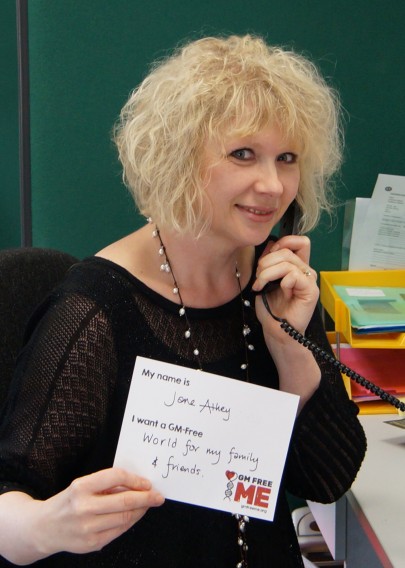 My name is
Jane Athey
I want a GM-Free
World for my family
& friends.
GM FREE
ME